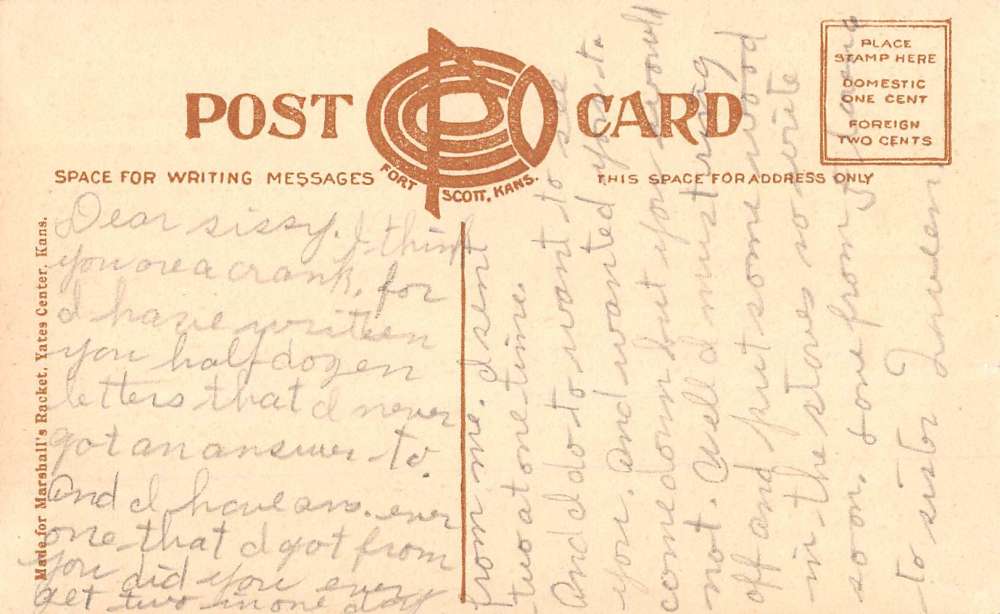 POST CARD
FORT SCOTT, KANS.
PLACE
STAMP HERE
DOMESTIC
ONE CENT
FOREIGN
TWO CENTS
SPACE FOR WRITING MESSAGES
THIS SPACE FOR ADDRESS ONLY
Made for Marshall's Racket, Yates Center, Kans.
Dear sissy. I think
you are a crank, for
I have writeen
you half dozen
letters that I never
got an answer to.
And I have ans. ever
one that I got from
you did you ever
get two in one day
from me. I sent
two at one time.
And I do to want to see
you. And wanted you to
come down but you would
not. Well I must
off and put some wood
in the stoves so write
soon. Love from
to sister